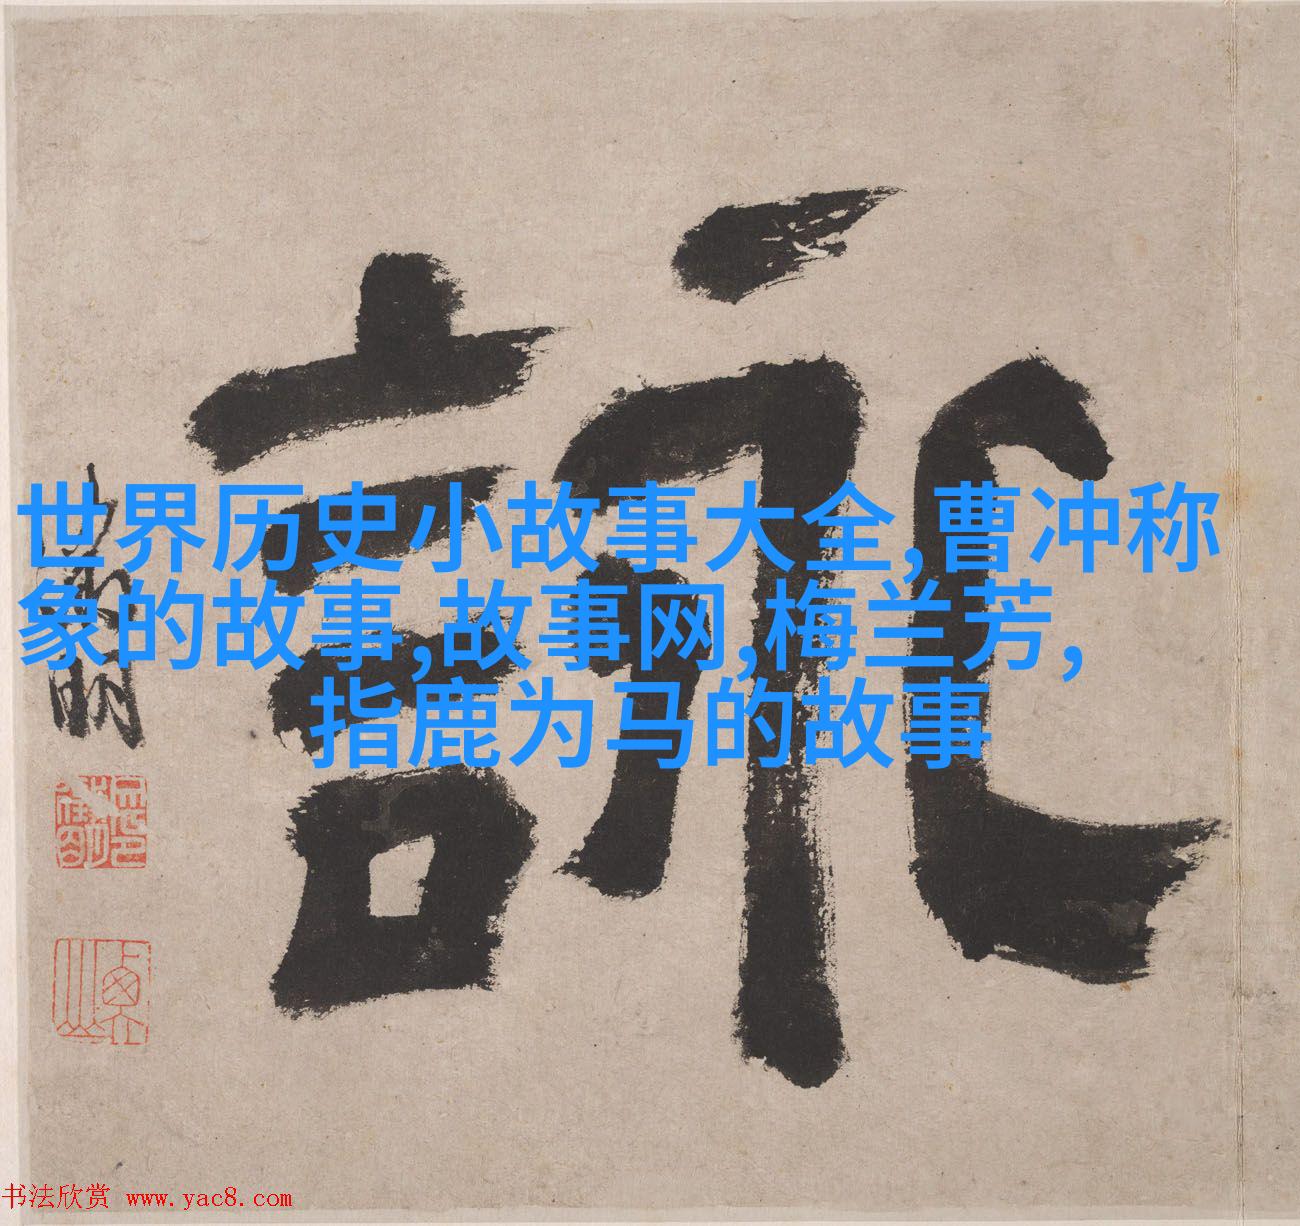 詠
世界历史小故事大全,曹冲称
象的故事,故事网,梅兰芳,
指鹿为马的故事
书法欣赏 www.yac8.com